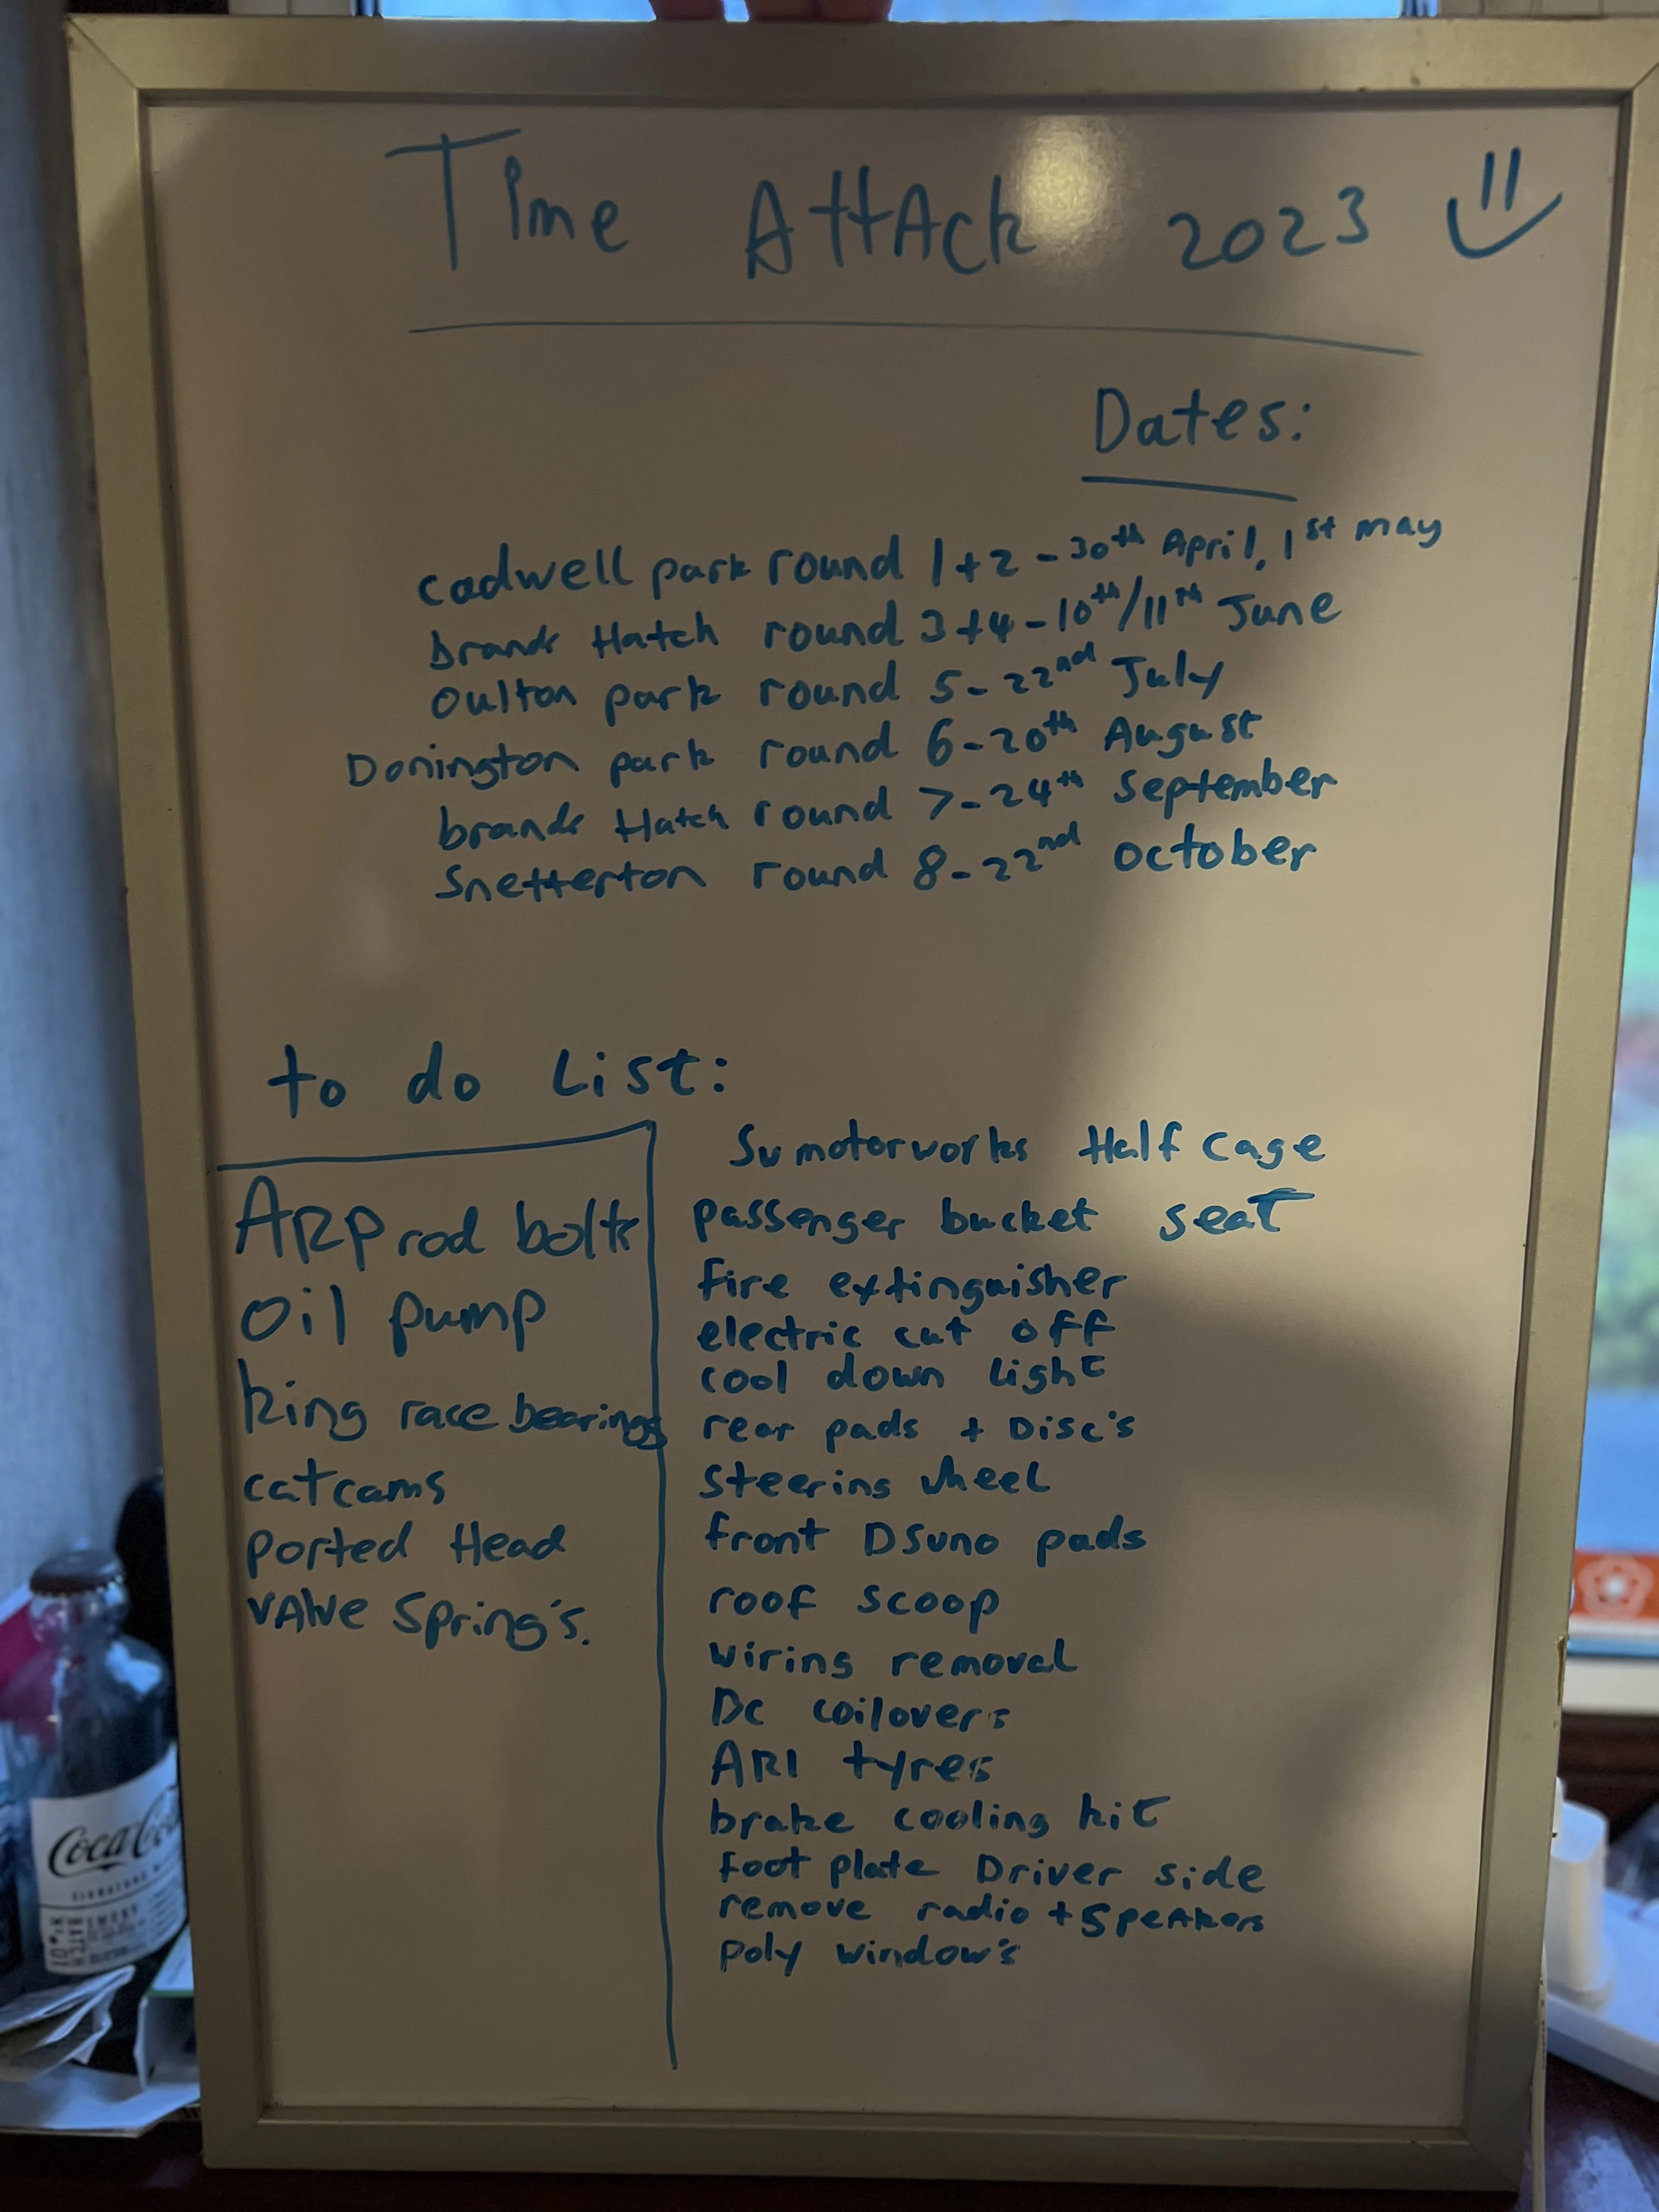 Time AttAck 2023
Dates:
cadwell park round 1+2 - 30th April, 1st may
brands Hatch round 3+4 - 10th/11th June
Oulton park round 5 - 22nd July
Donington park round 6 - 20th August
brands Hatch round 7 - 24th September
Snetterton round 8 - 22nd october
to do List:
ARP rod bolts
oil pump
king race bearings
catcams
ported Head
vAlve Spring's.
Sv motorworks Half cage
passenger bucket seat
fire extinguisher
electric cut off
cool down light
rear pads + Disc's
steering wheel
front DSuno pads
roof scoop
wiring removal
Dc coilovers
AR1 tyres
brake cooling kit
foot plate Driver side
remove radio + SpeAkers
poly window's
Coca Cola